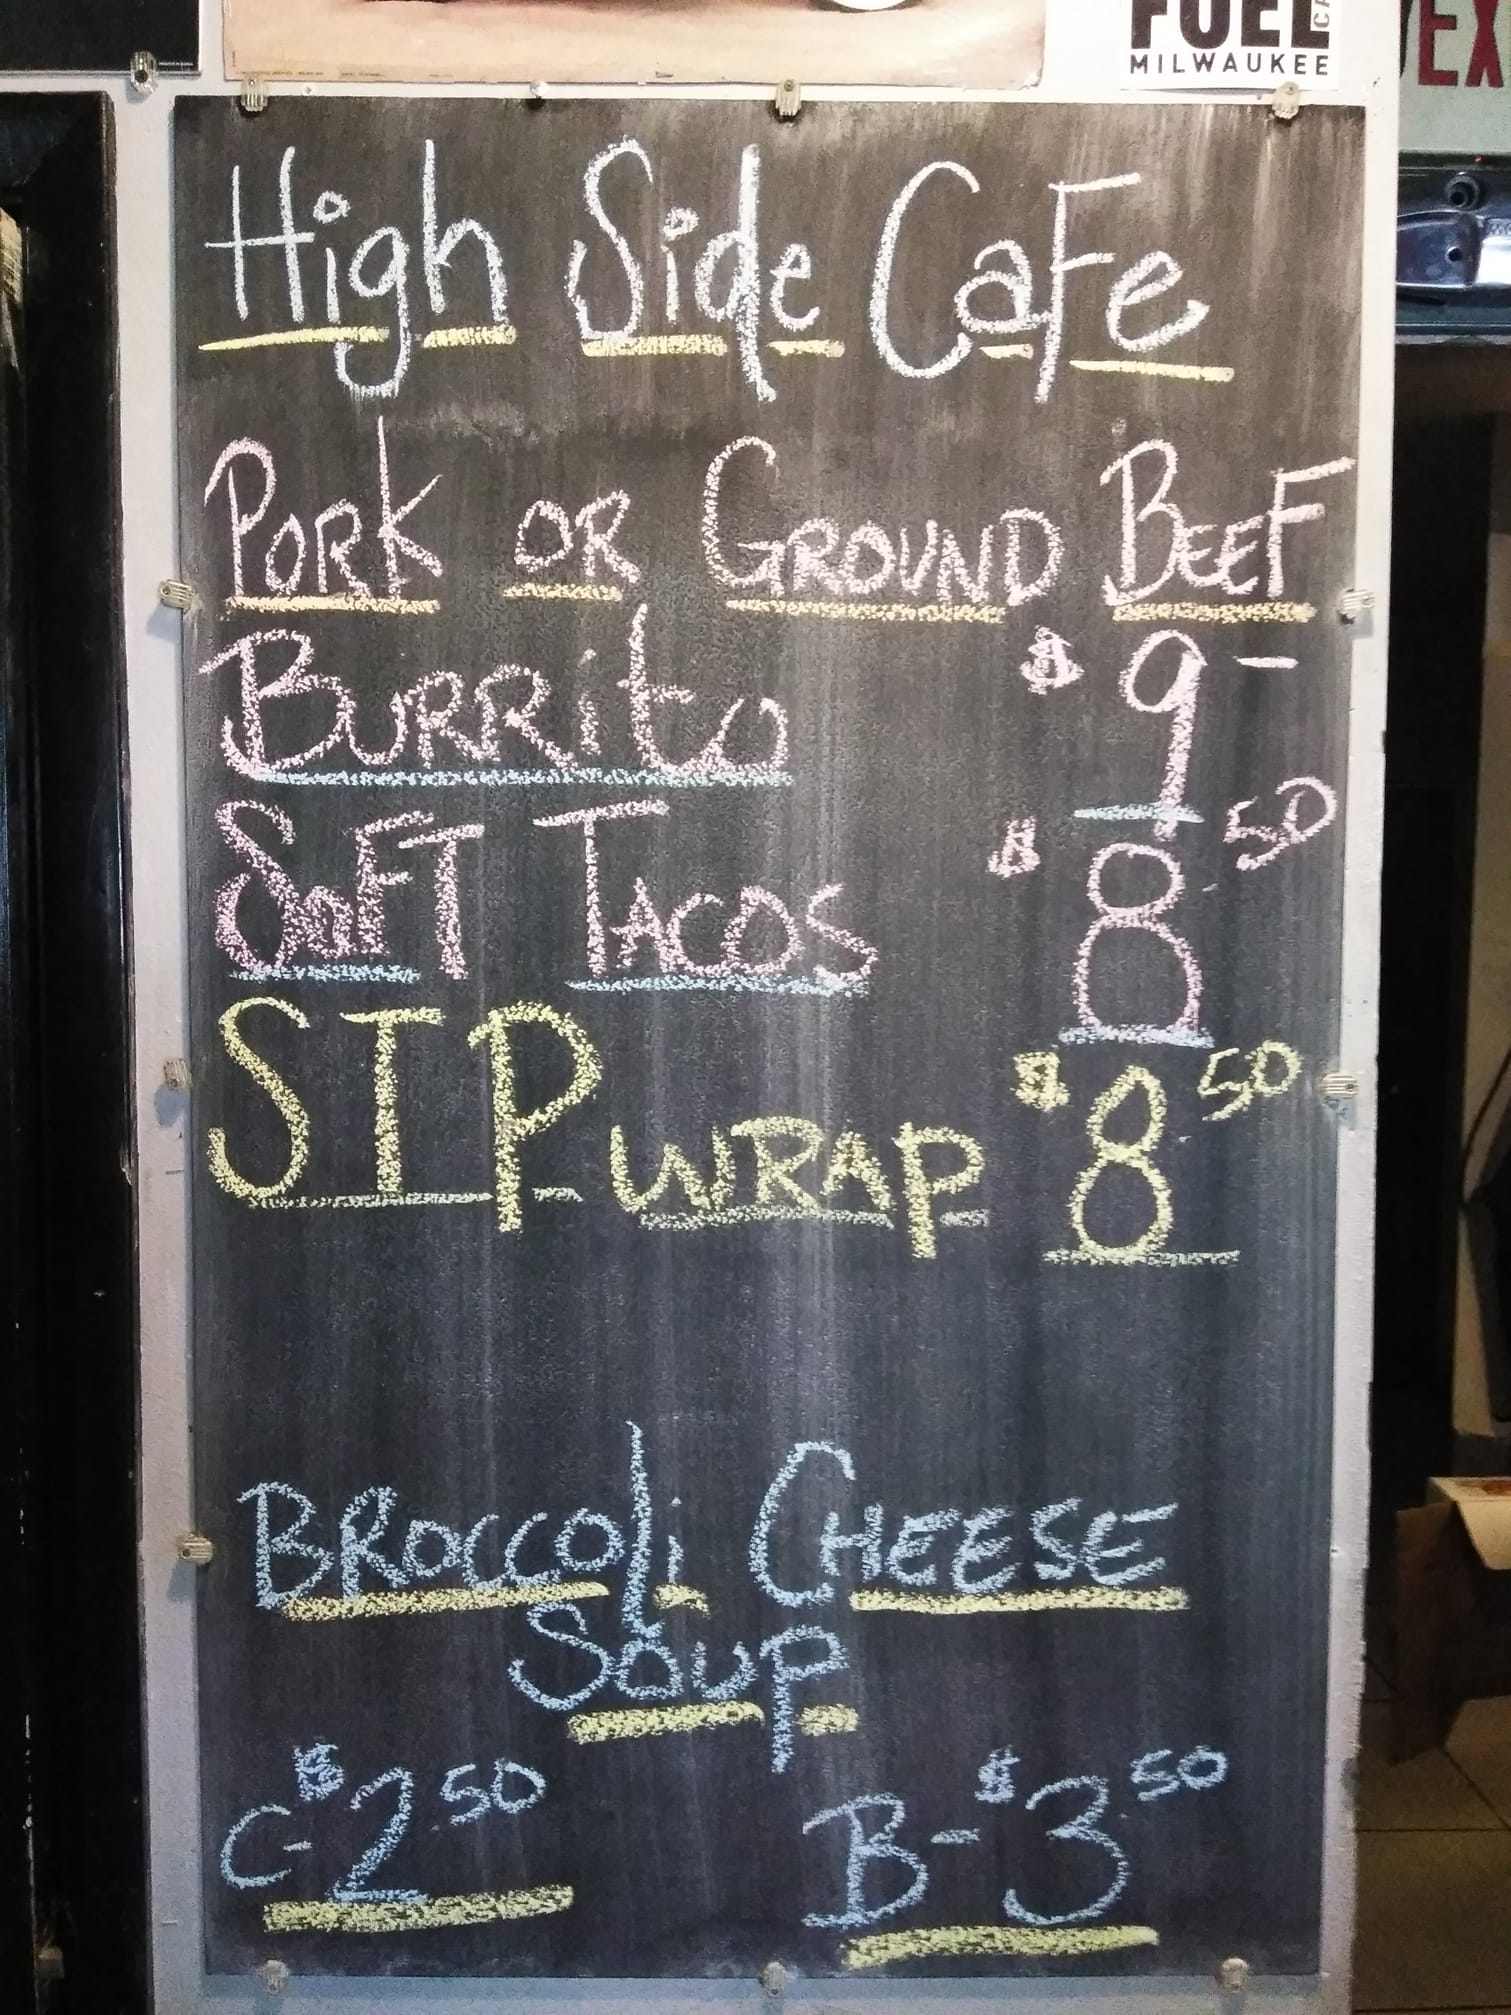 FUEL CA
MILWAUKEE
EX
High Side CaFe
PORK OR GROUND BEEF
BURRito $9-
SoFT TACOS $8.50
STP WRAP $8.50
BROCColi CHEESE
SOUP
C-$2.50 B-$3.50